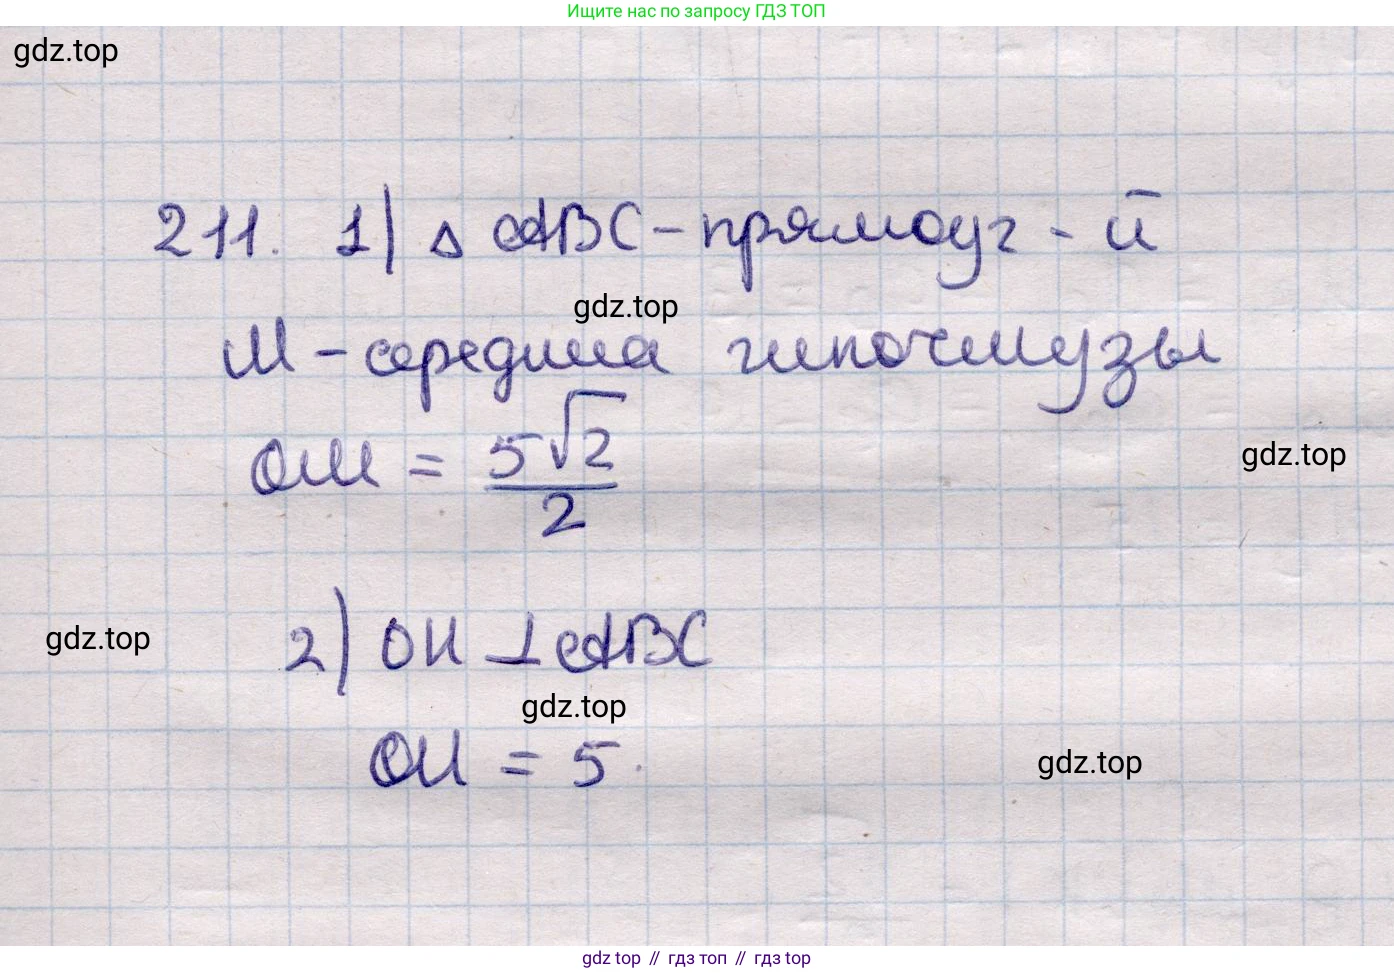 Ищите нас по запросу ГДЗ ТОП
gdz.top
211. 1) △ ABC - прямоуг - й
gdz.top
M - середина гипотенузы
OM = \frac{5\sqrt{2}}{2}
gdz.top
2) OH ⊥ ABC
gdz.top
gdz.top
OH = 5.
gdz.top
gdz top // гдз топ // гдз top